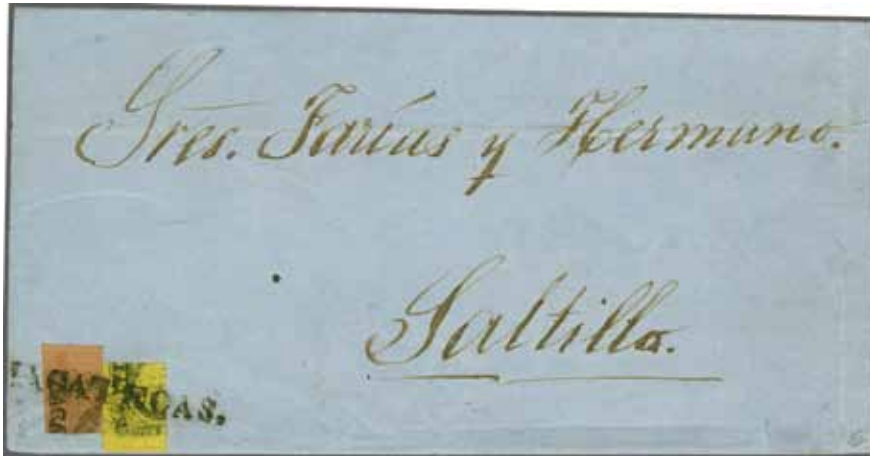 Sres. Farías y Hermano.
Saltillo.
ZACATECAS.